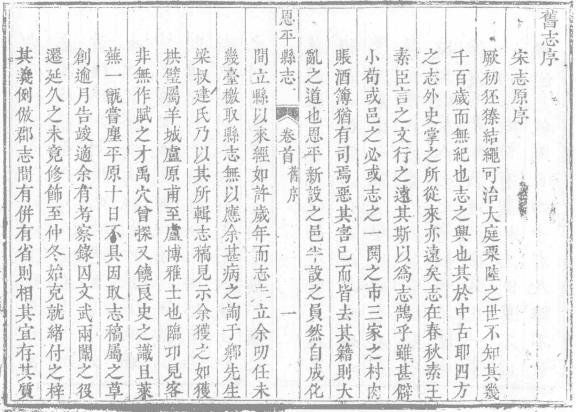 舊志序
宋志原序
厥初狉獉結繩可治大庭栗陸之世不知其幾
千百歲而無紀也志之興也其於中古耶四方
之志外史掌之所從來亦遠矣志在春秋素王
素臣言之文行之遠其斯以為志鵠乎雖甚僻
小苟或邑之必或志之一閧之市三家之村肉
賬酒簿猶有司焉惡其害已而皆去其籍則大
亂之道也恩平新設之邑牟設之員然自成化
恩平縣志 卷首 舊序 一
間立縣以來經如許歲年而志 立余叨任未
幾臺檄取縣志無以應余甚病之詢于鄉先生
梁叔建氏乃以其所輯志稿見示余獲之如獲
拱璧屬羊城盧原甫至盧博雅士也臨邛見客
非無作賦之才禹穴曾探又饒良史之識且萊
蕪一甑嘗塵平原十日不具因取志稿屬之草
創逾月告竣適余有考察錄囚文武兩闈之役
遷延久之未竟修飾至仲冬始克就緒付之梓
其義例倣郡志間有併有省則相其宜存其質